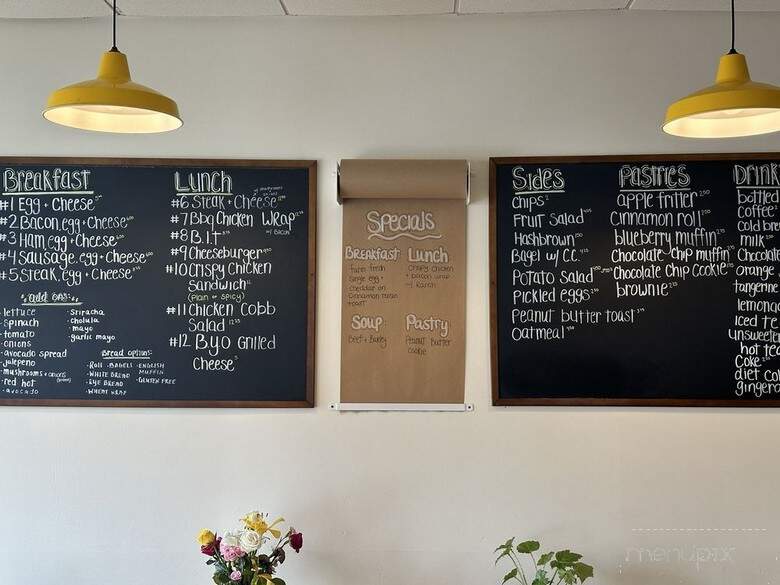 Breakfast
#1 Egg + Cheese
#2 Bacon, egg + Cheese
#3 Ham, egg + Cheese
#4 Sausage, egg + Cheese
#5 Steak, egg + Cheese
"add ons:"
lettuce
spinach
tomato
onions
avocado spread
jalepeno
mushrooms + onions
red hot
avocado
sriracha
cholula
mayo
garlic mayo
Bread options:
Roll · Bagels · English Muffin
White Bread
Rye Bread · Gluten Free
Wheat Wrap
Lunch
#6 Steak + Cheese
#7 Bbq Chicken Wrap
w/ Bacon
#8 B.l.t
#9 Cheeseburger
#10 Crispy Chicken
Sandwich
(Plain or Spicy)
#11 Chicken Cobb
Salad
#12 Byo Grilled
Cheese
Specials
Breakfast
Farm fresh
single egg +
cheddar on
Cinnamon raisin
toast
Lunch
Crispy chicken
+ bacon wrap
w/ Ranch
Soup
Beef + Barley
Pastry
Peanut Butter
cookie
Sides
Chips
Fruit Salad
Hashbrown
Bagel w/ CC
Potato Salad
Pickled eggs
Peanut butter toast
Oatmeal
Pastries
apple fritter
Cinnamon roll
blueberry muffin
Chocolate chip muffin
Chocolate chip cookie
brownie
Drink
bottled
Coffee
Cold bre
milk
Chocolate
orange
tangerine
lemonad
Iced te
unsweeten
hot tea
Coke
diet cok
gingera
menupix